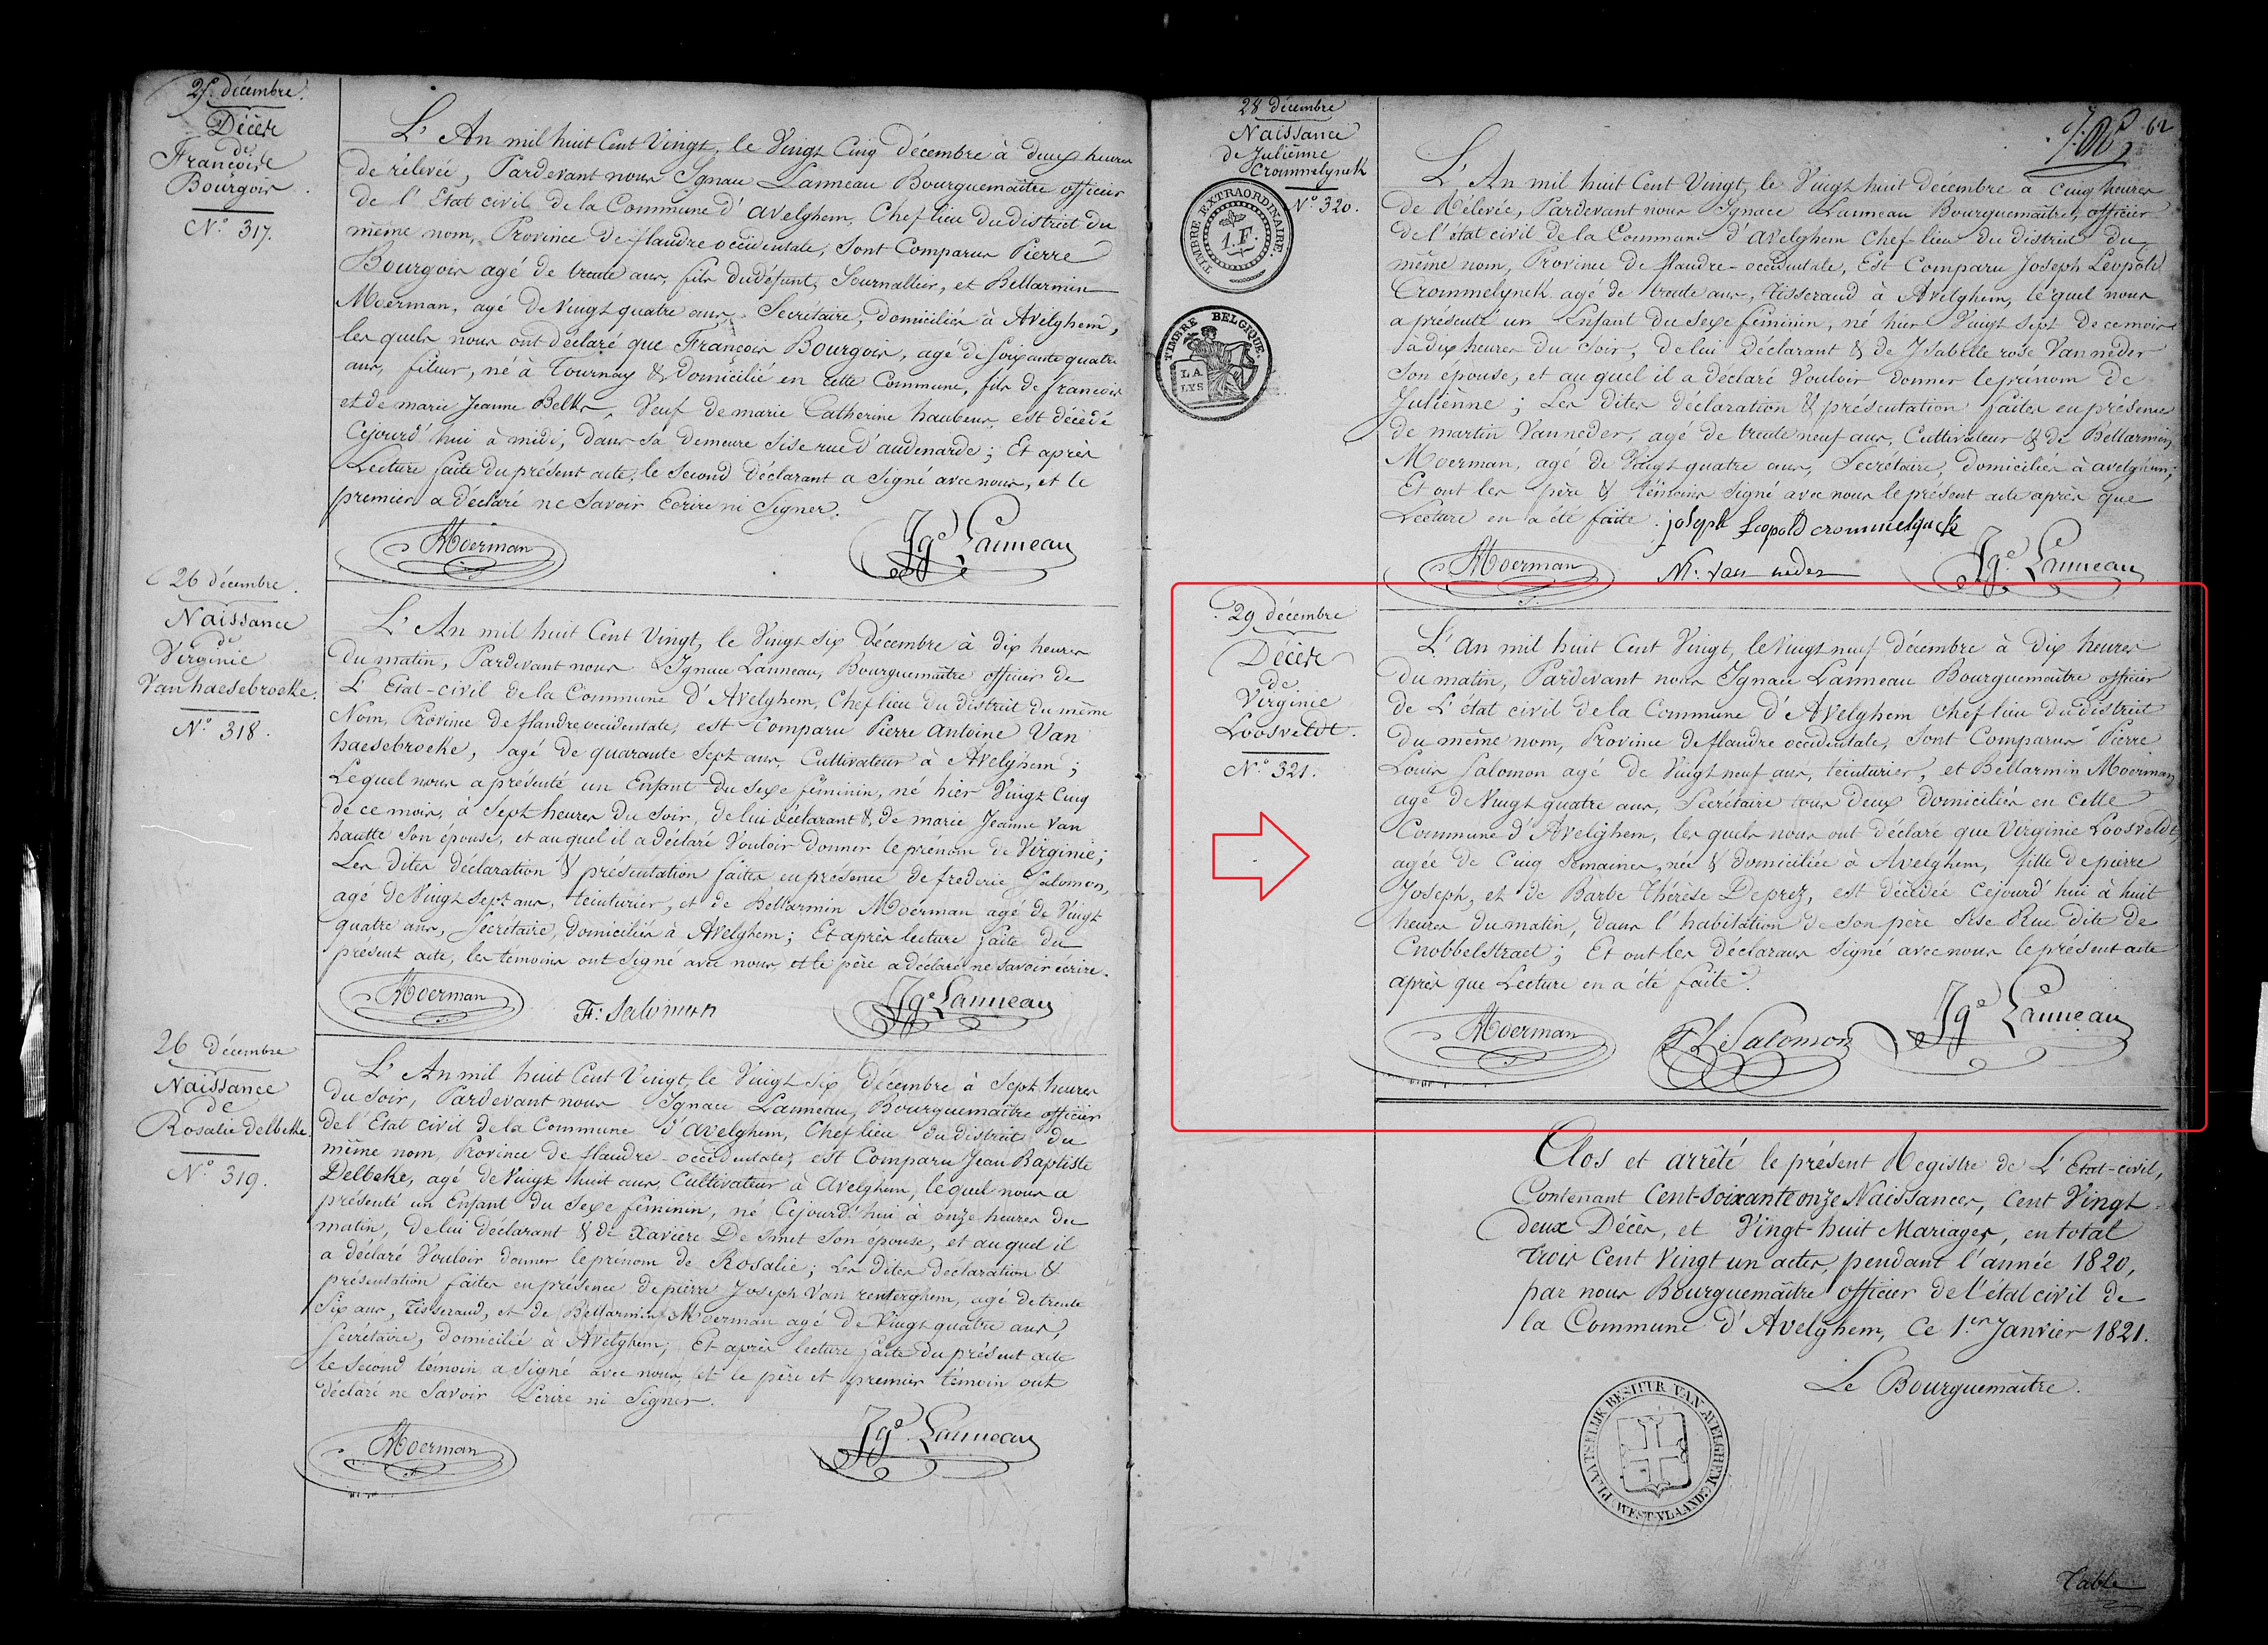 25 décembre.
Décès
de
Francois
Bourgois
N.° 317.
L'An mil huit Cent Vingt, le Vingt Cinq Décembre à deux heures
de rélevée, Pardevant nous Ignace Lanneau Bourguemaître officier
de l'Etat civil de la Commune d'Avelghem, Chef lieu du district du
même nom, Province de flandre occidentale, Sont Comparus Pierre
Bourgois agé de trente ans, fils du défunt, Journallier, et Bellarmin
Moerman, agé de Vingt quatre ans, Secrétaire, domiciliés à Avelghem,
les quels nous ont déclaré que François Bourgois, agé de soixante quatre
ans, fileur, né à Tournay & domicilié en cette Commune, fils de francois
et de marie Jeanne Belks, Veuf de marie Catherine haubeur, est décédé
Cejourd'hui à midi, dans sa demeure sise rue d'audenarde; Et après
Lecture faite du présent acte, le second déclarant a signé avec nous, et le
premier a déclaré ne savoir Ecrire ni Signer.
Moerman
Jg.e Lanneau
26 décembre.
Naissance
de
Virginie
Vanhaesebroeke.
N.° 318.
L'An mil huit Cent Vingt, le Vingt six décembre à dix heures
du matin, Pardevant nous Ignace Lanneau, Bourguemaître officier de
L'Etat-civil de la Commune d'Avelghem, Chef lieu du district du même
Nom, Province de flandre occidentale, est Comparu Pierre Antoine Van
haesebroeke, agé de quarante sept ans, Cultivateur à Avelghem;
Lequel nous a présenté un Enfant du sexe féminin, né hier Vingt Cinq
de ce mois, à Sept heures du soir, de lui déclarant & de marie Jeanne Van
hautte son épouse, et au quel il a déclaré Vouloir donner le prénom de Virginie;
Les dites déclaration & présentation faites en présence de frederic Salomon,
agé de Vingt sept ans, teinturier, et de Bellarmin Moerman agé de Vingt
quatre ans, Secrétaire, domiciliés à Avelghem; Et après lecture faite du
présent acte, les témoins ont signé avec nous, et le père a déclaré ne savoir écrire.
Moerman
F: Salomon
Jg.e Lanneau
26 Décembre
Naissance
de
Rosalie Delbeke
N.° 319.
L'An mil huit Cent Vingt, le Vingt six décembre à Sept heures
du soir, Pardevant nous Ignace Lanneau, Bourguemaître officier
de l'Etat civil de la Commune d'Avelghem, Chef lieu du district du
même nom, Province de flandre-occidentale, est Comparu Jean Baptiste
Delbeke, agé de Vingt huit ans, Cultivateur à Avelghem, lequel nous a
présenté un Enfant du sexe féminin, né Cejourd'hui à onze heures du
matin, de lui déclarant & de Xavière De Smet son épouse, et au quel il
a déclaré Vouloir donner le prénom de Rosalie; Les dites déclaration &
présentation faites en présence de pierre Joseph Van renterghem, agé de trente
Six ans, Tisserand, et de Bellarmin Moerman agé de Vingt quatre ans,
Secrétaire, domicilié à Avelghem; Et après lecture faite du présent acte
le second témoin a signé avec nous, et le père et premier témoin ont
déclaré ne savoir Ecrire ni Signer.
Moerman
Jg.e Lanneau
62
28 décembre
Naissance
de Julienne
Crommelynck
N.° 320.
TIMBRE EXTRAORDINAIRE.
1.F.
TIMBRE BELGIQUE
LA
LYS
L'An mil huit Cent Vingt, le Vingt huit décembre à Cinq heures
de rélevée, Pardevant nous Ignace Lanneau Bourguemaître, officier
de l'état civil de la Commune d'Avelghem Chef-lieu du district du
même nom, Province de flandre-occidentale, Est Comparu Joseph Leopold
Crommelynck agé de trente ans, tisserand à Avelghem, lequel nous
a présenté un Enfant du sexe féminin, né hier Vingt sept de ce mois
à dix heures du soir, de lui déclarant & de Isabelle rose Vanneder
Son épouse, et au quel il a déclaré Vouloir donner le prénom de
Julienne; Les dites déclaration & présentation faites en présence
de martin Vanneder, agé de trente neuf ans, Cultivateur & de Bellarmin
Moerman, agé de Vingt quatre ans, Secrétaire, domiciliés à avelghem;
Et ont les père & témoins signé avec nous le présent acte après que
Lecture en a été faite. joseph Leopold crommelynck
Moerman
M: van neder
Jg.e Lanneau
29 décembre
Décès
de
Virginie
Loosveldt.
N.° 321.
L'An mil huit Cent Vingt, le Vingt neuf décembre à Dix heures
du matin, Pardevant nous Ignace Lanneau Bourguemaître officier
de L'état civil de la Commune d'Avelghem Chef lieu du district
du même nom, Province de flandre occidentale, Sont Comparus Pierre
Louis Salomon agé de Vingt neuf ans, teinturier, et Bellarmin Moerman
agé de Vingt quatre ans, Secrétaire tous deux domiciliés en Cette
Commune d'Avelghem, les quels nous ont déclaré que Virginie Loosveldt,
agée de Cinq Semaines, née & domiciliée à Avelghem, fille de pierre
Joseph, et de Barbe Thérèse Deprez, est décédée Cejourd'hui à huit
heures du matin, dans l'habitation de son père sise Rue dite de
Cnobbelstraet; Et ont les déclarans signé avec nous le présent acte
après que Lecture en a été faite.
Moerman
P L Salomon
Jg.e Lanneau
Clos et arrêté le présent Registre de L'Etat-civil,
Contenant Cent-soixante onze Naissances, Cent Vingt
deux Décès, et Vingt-huit Mariages, en total
trois Cent Vingt un actes, pendant l'année 1820,
par nous Bourguemaître officier de l'état civil de
la Commune d'Avelghem, Ce 1.er Janvier 1821.
Le Bourguemaître.
PLAATSELIJK BESTUUR VAN AVELGHEM
WEST-VLAANDE
Table